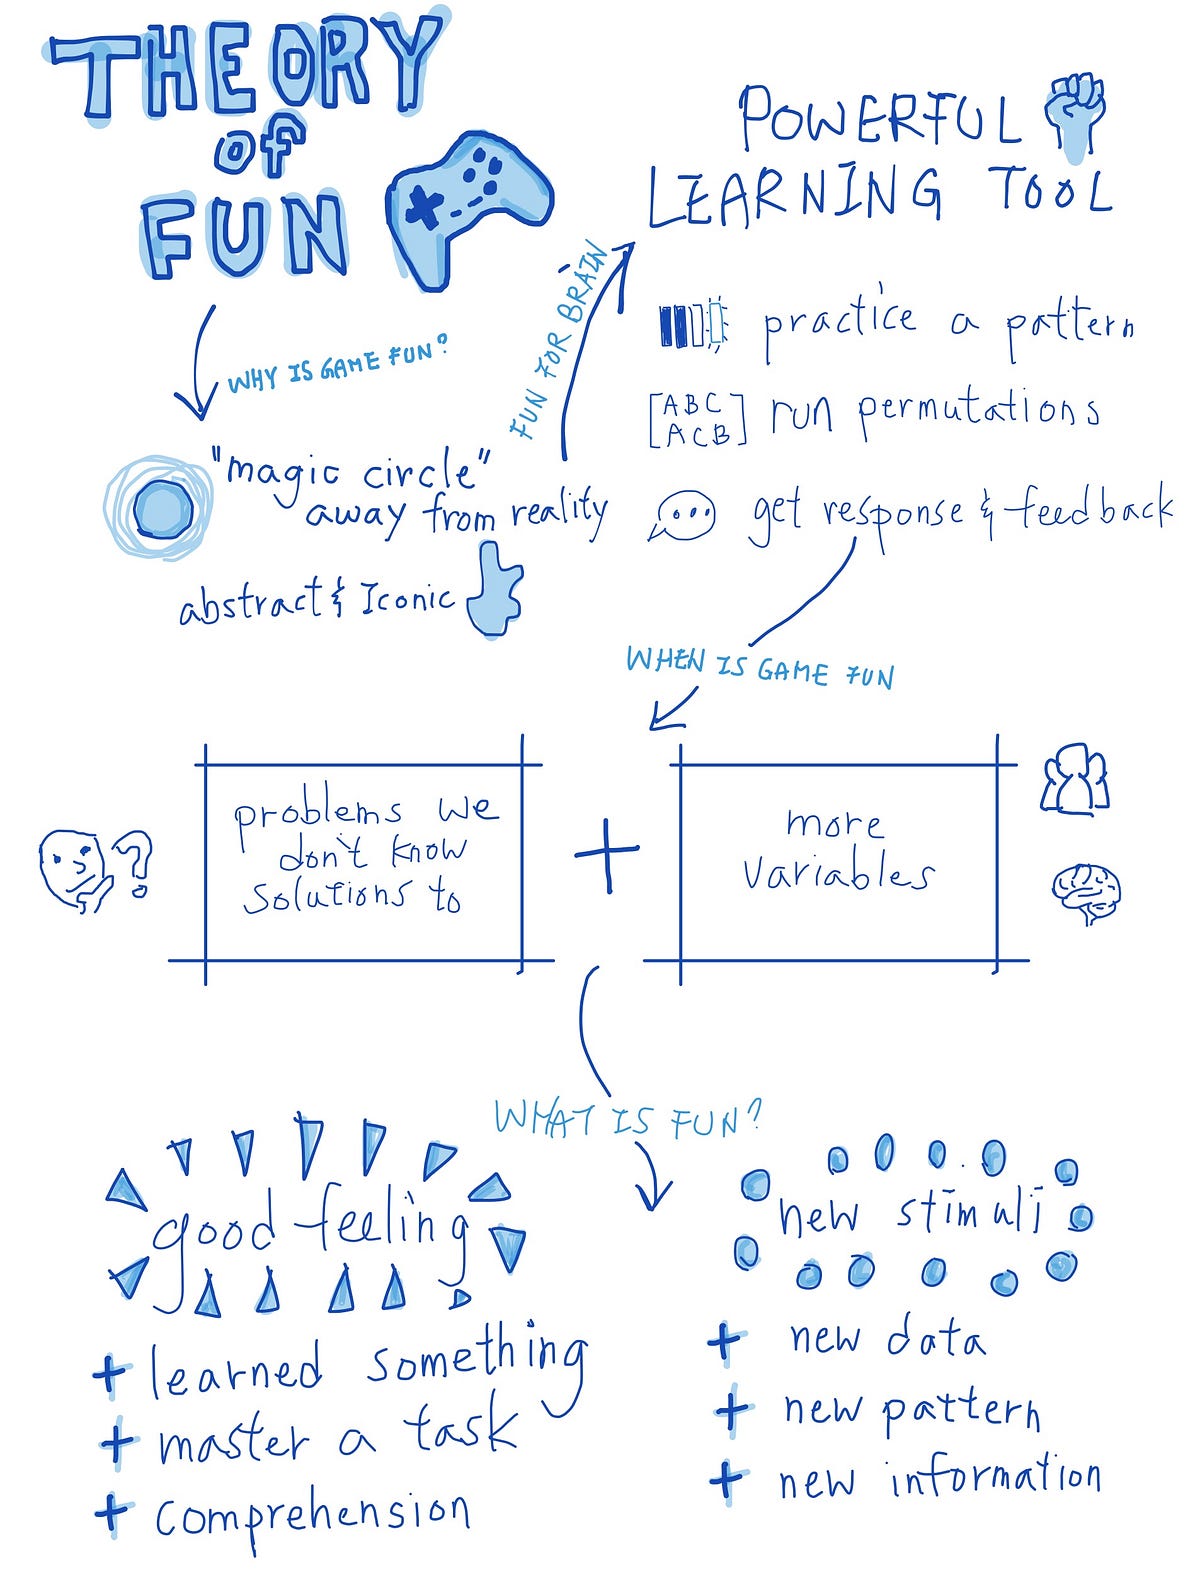 THEORY
of
FUN
WHY IS GAME FUN?
"magic circle"
away from reality
abstract & Iconic
FUN FOR BRAIN
POWERFUL
LEARNING TOOL
practice a pattern
[ABC
ACB] run permutations
get response & feedback
WHEN IS GAME FUN
problems we
don't know
solutions to
?
+
more
variables
WHAT IS FUN?
good feeling
+ learned something
+ master a task
+ comprehension
new stimuli
+ new data
+ new pattern
+ new information